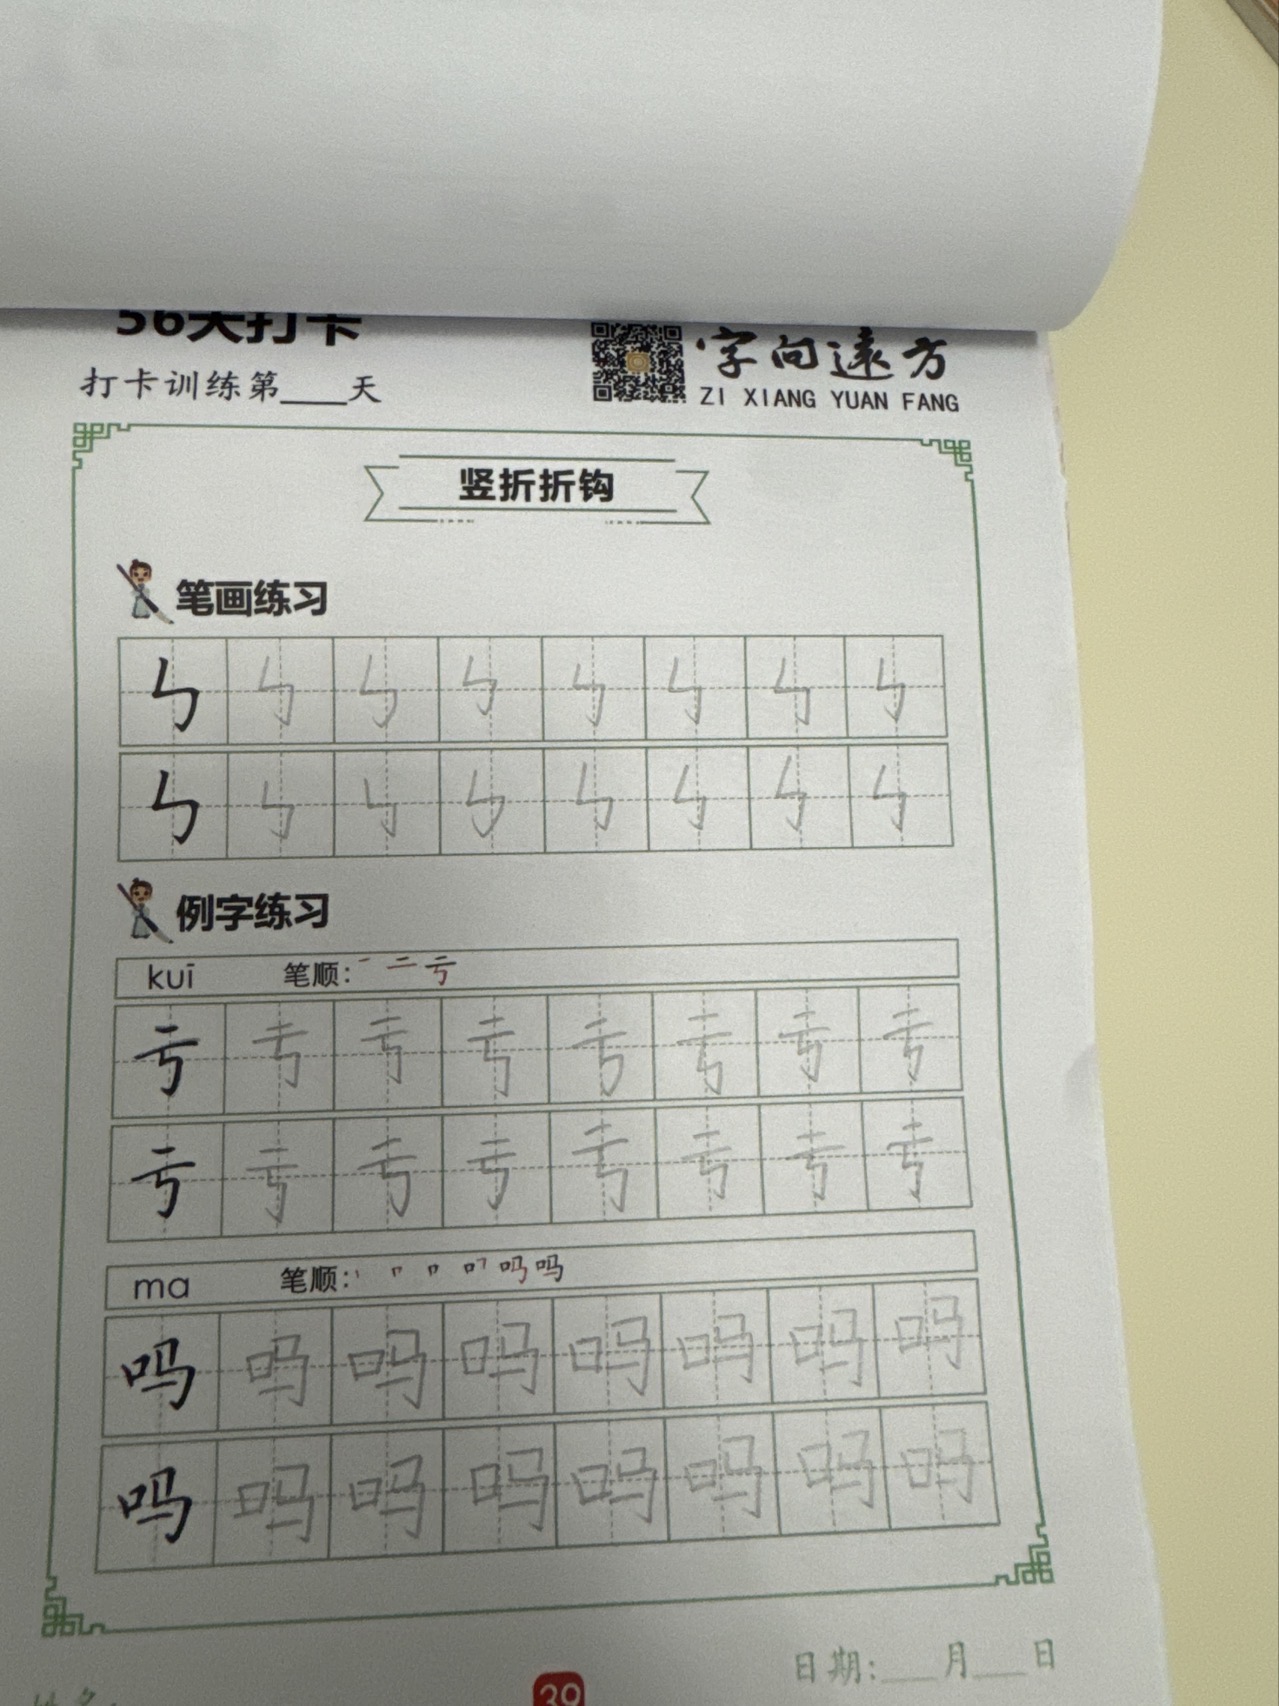 56天打卡
打卡训练第____天
字向遠方
ZI XIANG YUAN FANG
竖折折钩
笔画练习
ㄣ ㄣ ㄣ ㄣ ㄣ ㄣ ㄣ ㄣ
ㄣ ㄣ ㄣ ㄣ ㄣ ㄣ ㄣ ㄣ
例字练习
kuī 笔顺: 一 二 亏
亏 亏 亏 亏 亏 亏 亏 亏
亏 亏 亏 亏 亏 亏 亏 亏
ma 笔顺: 吗 吗
吗 吗 吗 吗 吗 吗 吗 吗
吗 吗 吗 吗 吗 吗 吗 吗
日期:___月___日
39